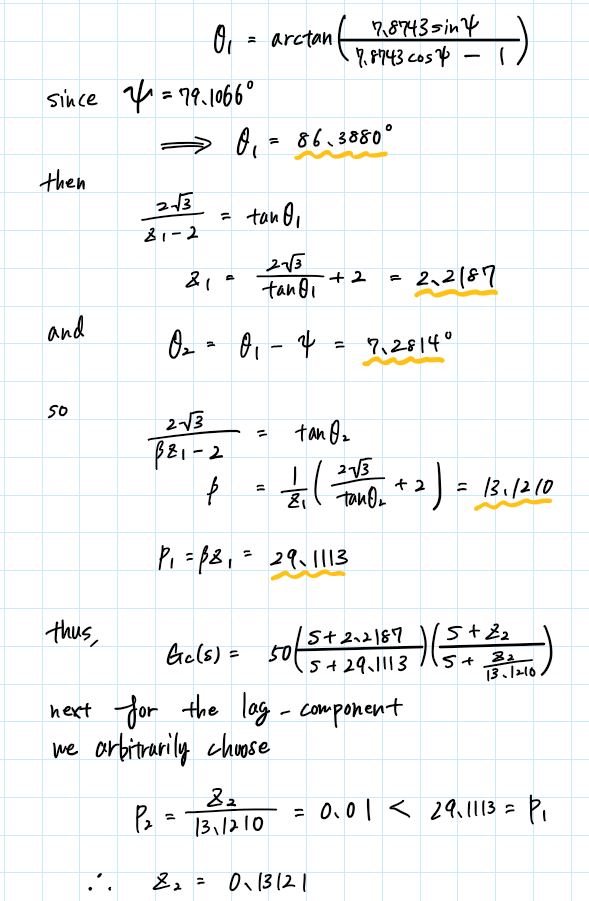 θ₁ = arctan(7.8743 sinψ / (7.8743 cosψ − 1))
since ψ = 79.1066°
⟹ θ₁ = 86.3880°
then
2√3 / (z₁ − 2) = tanθ₁
z₁ = 2√3 / tanθ₁ + 2 = 2.2187
and θ₂ = θ₁ − ψ = 7.2814°
so
2√3 / (βz₁ − 2) = tanθ₂
β = 1/z₁ (2√3 / tanθ₂ + 2) = 13.1210
P₁ = βz₁ = 29.1113
thus, Gc(s) = 50((s + 2.2187) / (s + 29.1113))((s + z₂) / (s + z₂/13.1210))
next for the lag-component
we arbitrarily choose
P₂ = z₂ / 13.1210 = 0.01 < 29.1113 = P₁
∴ z₂ = 0.13121